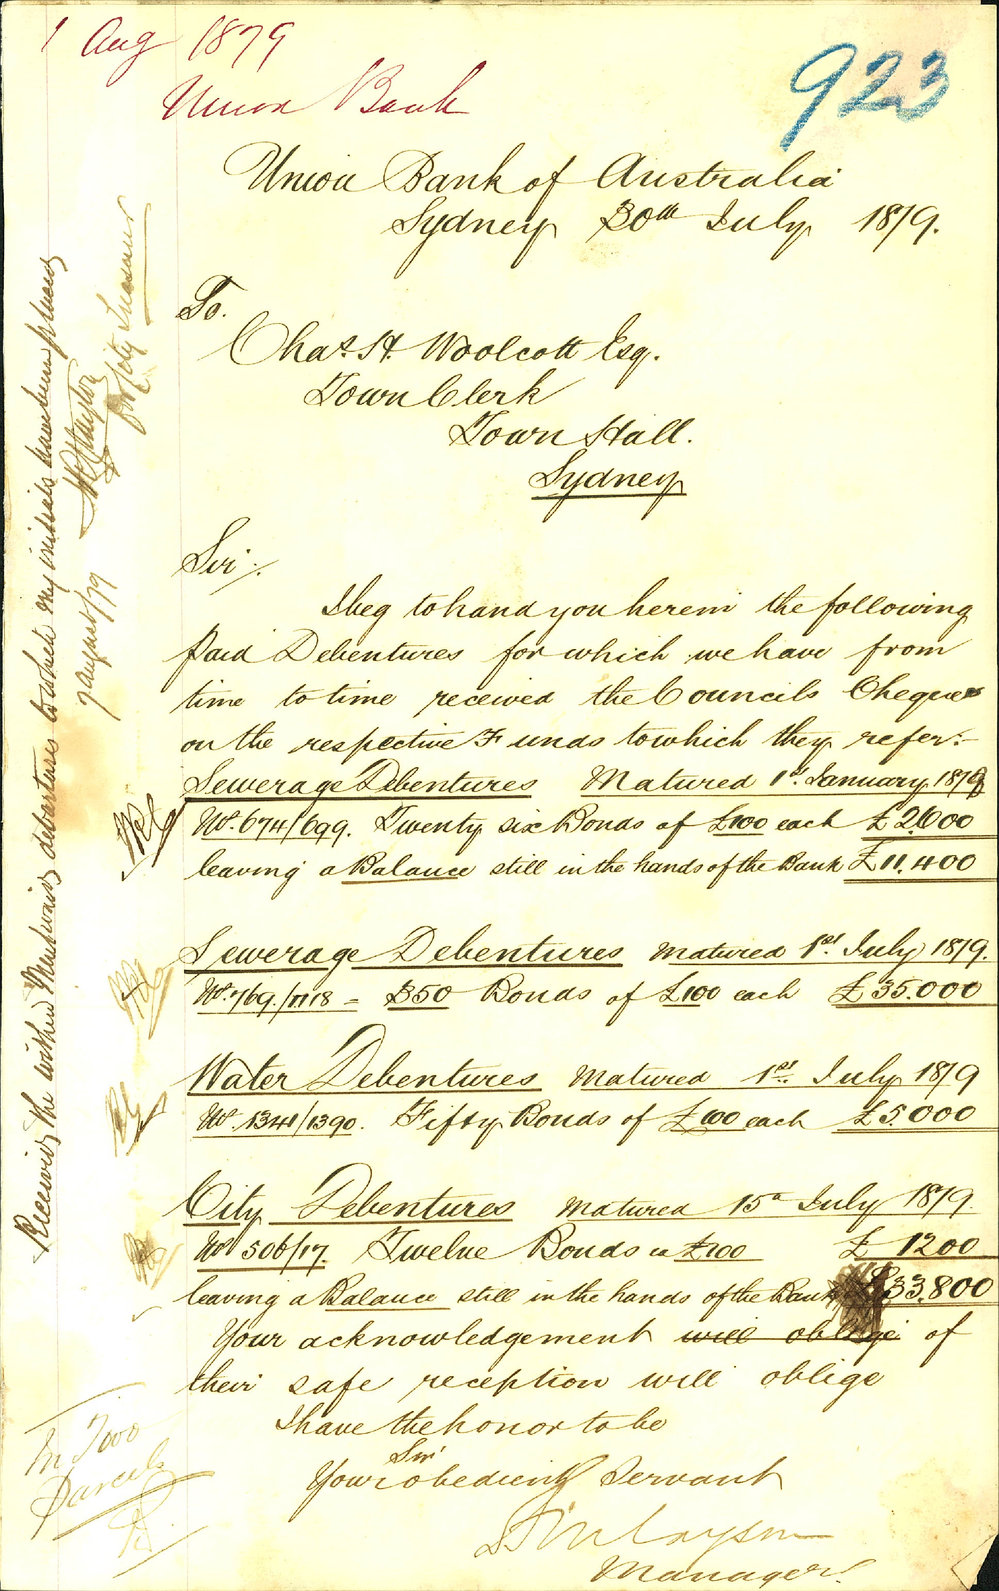 1 Aug 1879
Union Bank
923
Union Bank of Australia
Sydney 30th July 1879.
To.
Chas. H. Woolcott Esq.
Town Clerk
Town Hall.
Sydney
Sir:.
I beg to hand you herein the following
Paid Debentures for which we have from
time to time received the Councils Cheques
on the respective Funds to which they refer:-
Sewerage Debentures Matured 1st. January 1879
No. 674/699. Twenty six Bonds of £100 each £2600
leaving a Balance still in the hands of the Bank £11.400
Sewerage Debentures matured 1st July 1879.
No. 769/1118 = 350 Bonds of £100 each £35.000
Water Debentures matured 1st. July 1879
No. 1341/1390. Fifty Bonds of £100 each £5.000
City Debentures matured 15th July 1879.
No 506/17. Twelve Bonds @ £100 £1200
leaving a Balance still in the hands of the Bank £33.800
Your acknowledgement will oblige of
their safe reception will oblige
I have the honor to be
Sir
Your obedient Servant
Manager.
Received the within Mentioned debentures to which my initials have been placed
7 August/79
for City Treasurer
In Two
Parcels